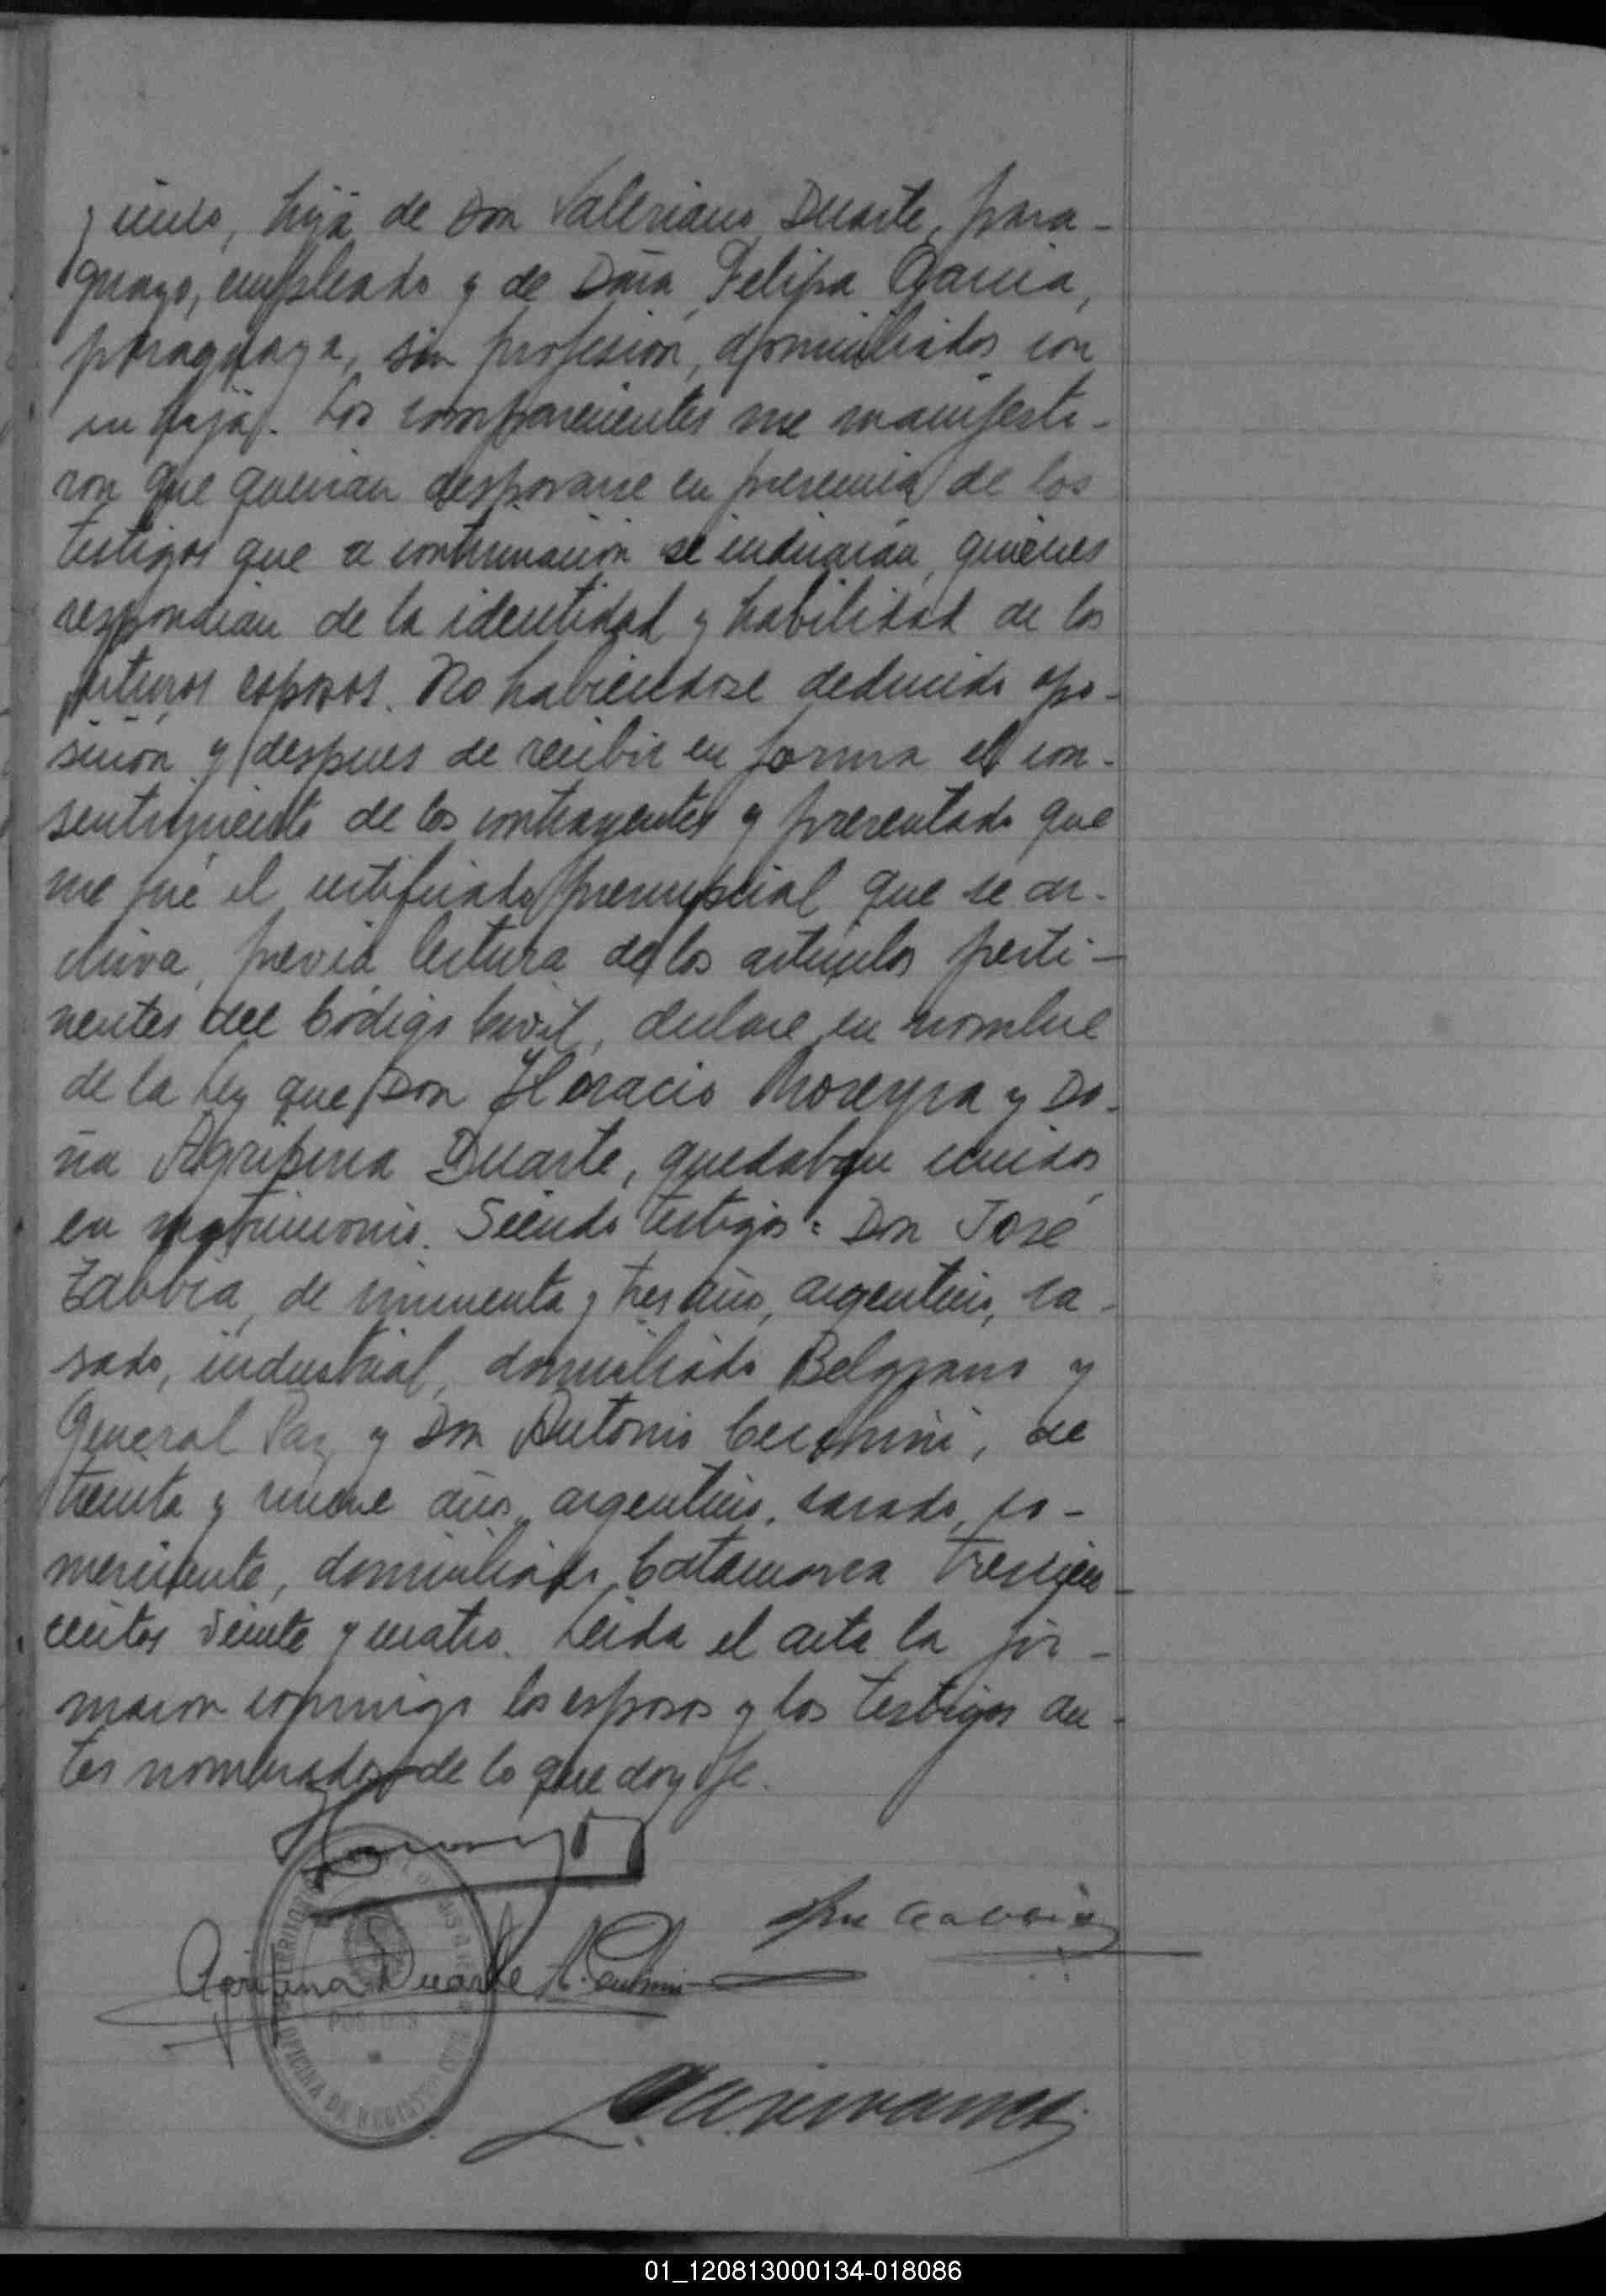 y cinco, hija de Don Valeriano Duarte, para-
guayo, empleado y de Doña Felipa Garcia,
paraguaya, sin profesión, domiciliados con
su hija. Los comparecientes me manifesta-
ron que querian desposarse en presencia de los
testigos que a continuación se indicarán, quienes
respondian de la identidad y habilidad de los
futuros esposos. No habiendose deducido opo-
sición y despues de recibir en forma el con-
sentimiento de los contrayentes y presentado que
me fué el certificado prenupcial que se ar-
chiva, previa lectura de los artículos perti-
nentes del Código Civil, declaré en nombre
de la Ley que Don Horacio Moreyra y Do-
ña Agripina Duarte, quedaban unidos
en matrimonio. Siendo testigos: Don José
Zabbia, de cincuenta y tres años, argentino, ca-
sado, industrial, domiciliado Belgrano y
General Paz y Don Antonio Cecchini, de
treinta y nueve años, argentino, casado, co-
merciante, domiciliado Catamarca trescien-
cientos veinte y cuatro. Leida el acta la fir-
maron conmigo los esposos y los testigos an-
tes nombrados de lo que doy fe.
Agripina Duarte
OFICINA DE REGISTRO
POSADAS
01_120813000134-018086